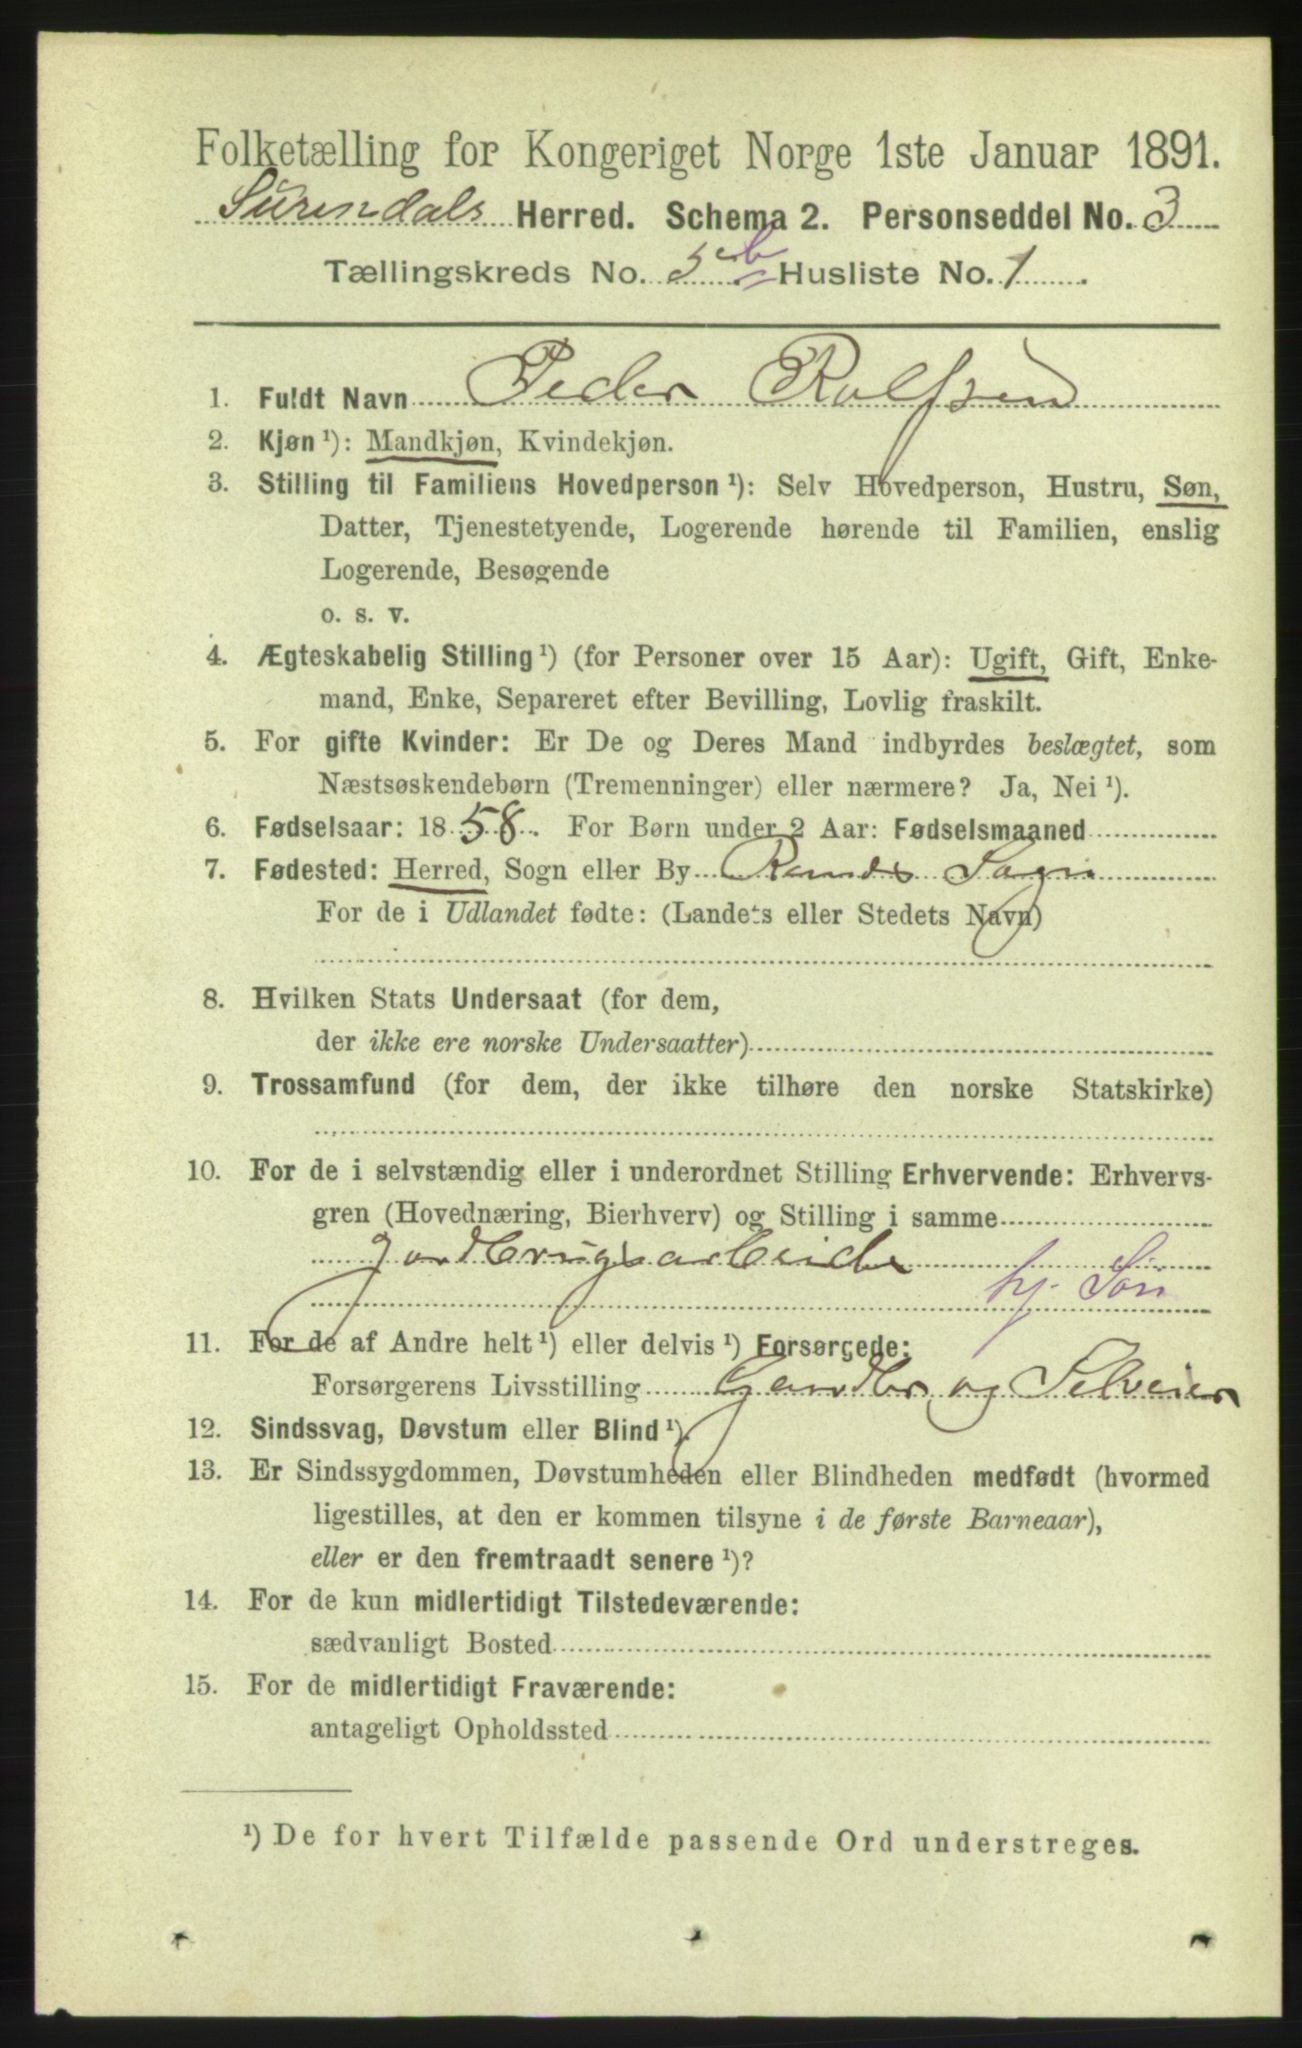 Folketælling for Kongeriget Norge 1ste Januar 1891.
Surendals Herred. Schema 2. Personseddel No. 3
Tællingskreds No. 5 b Husliste No. 1.
1. Fuldt Navn Peder Rolfsen
2. Kjøn ¹): Mandkjøn, Kvindekjøn.
3. Stilling til Familiens Hovedperson ¹): Selv Hovedperson, Hustru, Søn,
Datter, Tjenestetyende, Logerende hørende til Familien, enslig
Logerende, Besøgende
o. s. v.
4. Ægteskabelig Stilling ¹) (for Personer over 15 Aar): Ugift, Gift, Enke-
mand, Enke, Separeret efter Bevilling, Lovlig fraskilt.
5. For gifte Kvinder: Er De og Deres Mand indbyrdes beslægtet, som
Næstsøskendebørn (Tremenninger) eller nærmere? Ja, Nei ¹).
6. Fødselsaar: 1858. For Børn under 2 Aar: Fødselsmaaned
7. Fødested: Herred, Sogn eller By Rands Sogn
For de i Udlandet fødte: (Landets eller Stedets Navn)
8. Hvilken Stats Undersaat (for dem,
der ikke ere norske Undersaatter)
9. Trossamfund (for dem, der ikke tilhøre den norske Statskirke)
10. For de i selvstændig eller i underordnet Stilling Erhvervende: Erhvervs-
gren (Hovednæring, Bierhverv) og Stilling i samme
Jordbrugsarbeide
hj. Søn
11. For de af Andre helt ¹) eller delvis ¹) Forsørgede:
Forsørgerens Livsstilling Gardbr og Selveier
12. Sindssvag, Døvstum eller Blind ¹).
13. Er Sindssygdommen, Døvstumheden eller Blindheden medfødt (hvormed
ligestilles, at den er kommen tilsyne i de første Barneaar),
eller er den fremtraadt senere ¹)?
14. For de kun midlertidigt Tilstedeværende:
sædvanligt Bosted
15. For de midlertidigt Fraværende:
antageligt Opholdssted
¹) De for hvert Tilfælde passende Ord understreges.